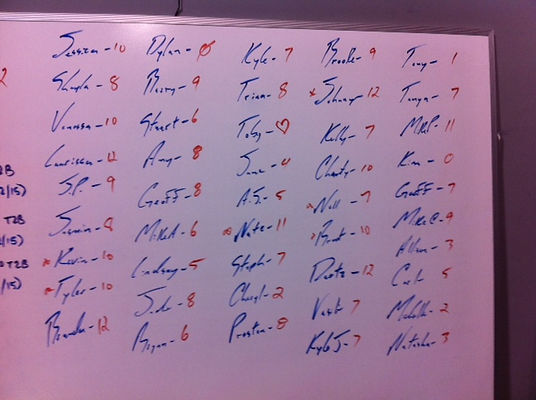 2
2B
2/15)
T2B
/15)
T2B
/15)
Jessica - 10
Shayla - 8
Vanessa - 10
- 12
S.P. - 9
- 8
* Kevin - 10
* Tyler - 10
Brandon - 12
Dylan -
Barry - 9
Stuart - 6
Amy - 8
Geoff - 8
Mike A - 6
Lindsay - 5
Jode - 8
Bryan - 6
Kyle - 7
Trina - 8
Toby - ♡
June - 4
A.S. - 5
* Nate - 11
Steph - 7
Cheryl - 2
Preston - 8
Brooke - 9
* Johnny - 12
Kelly - 7
Charity - 10
* Niall - 7
* Brent - 10
- 12
7
Kyle J - 7
Tony - 1
Tanya - 7
11
Kim - 0
Geoff - 7
Mike C - 9
Allison - 3
Carl - 5
Michelle - 2
Natasha - 3